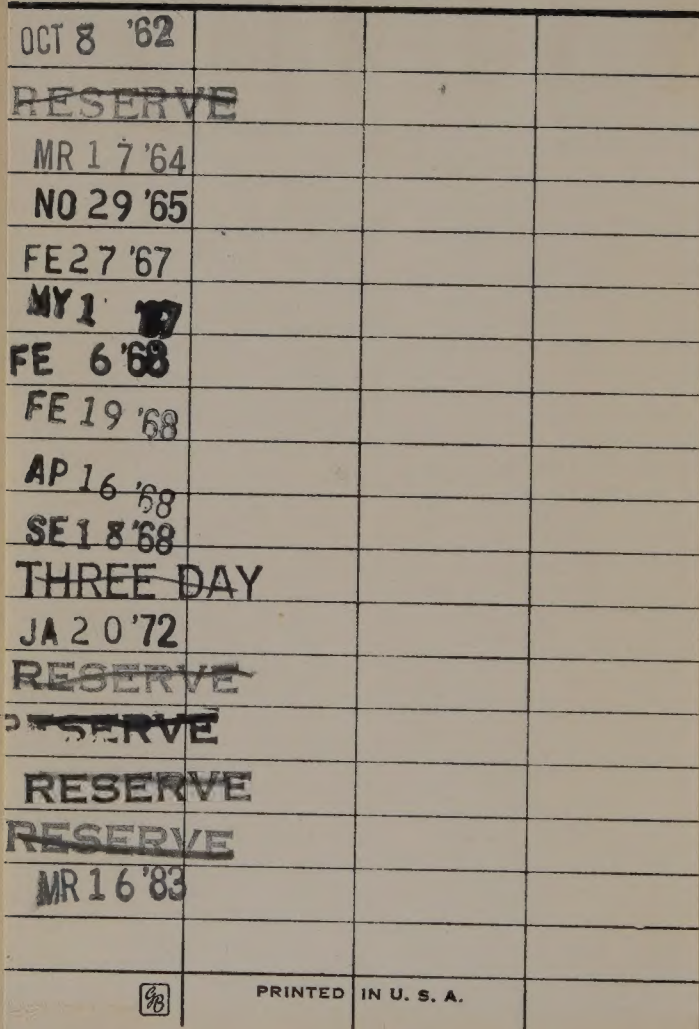 OCT 8 '62
RESERVE
MR 17 '64
NO 29 '65
FE 27 '67
MY 1 '67
FE 6 '68
FE 19 '68
AP 16 '68
SE 18 '68
THREE DAY
JA 20 '72
RESERVE
RESERVE
RESERVE
RESERVE
MR 16 '83
GB PRINTED IN U. S. A.